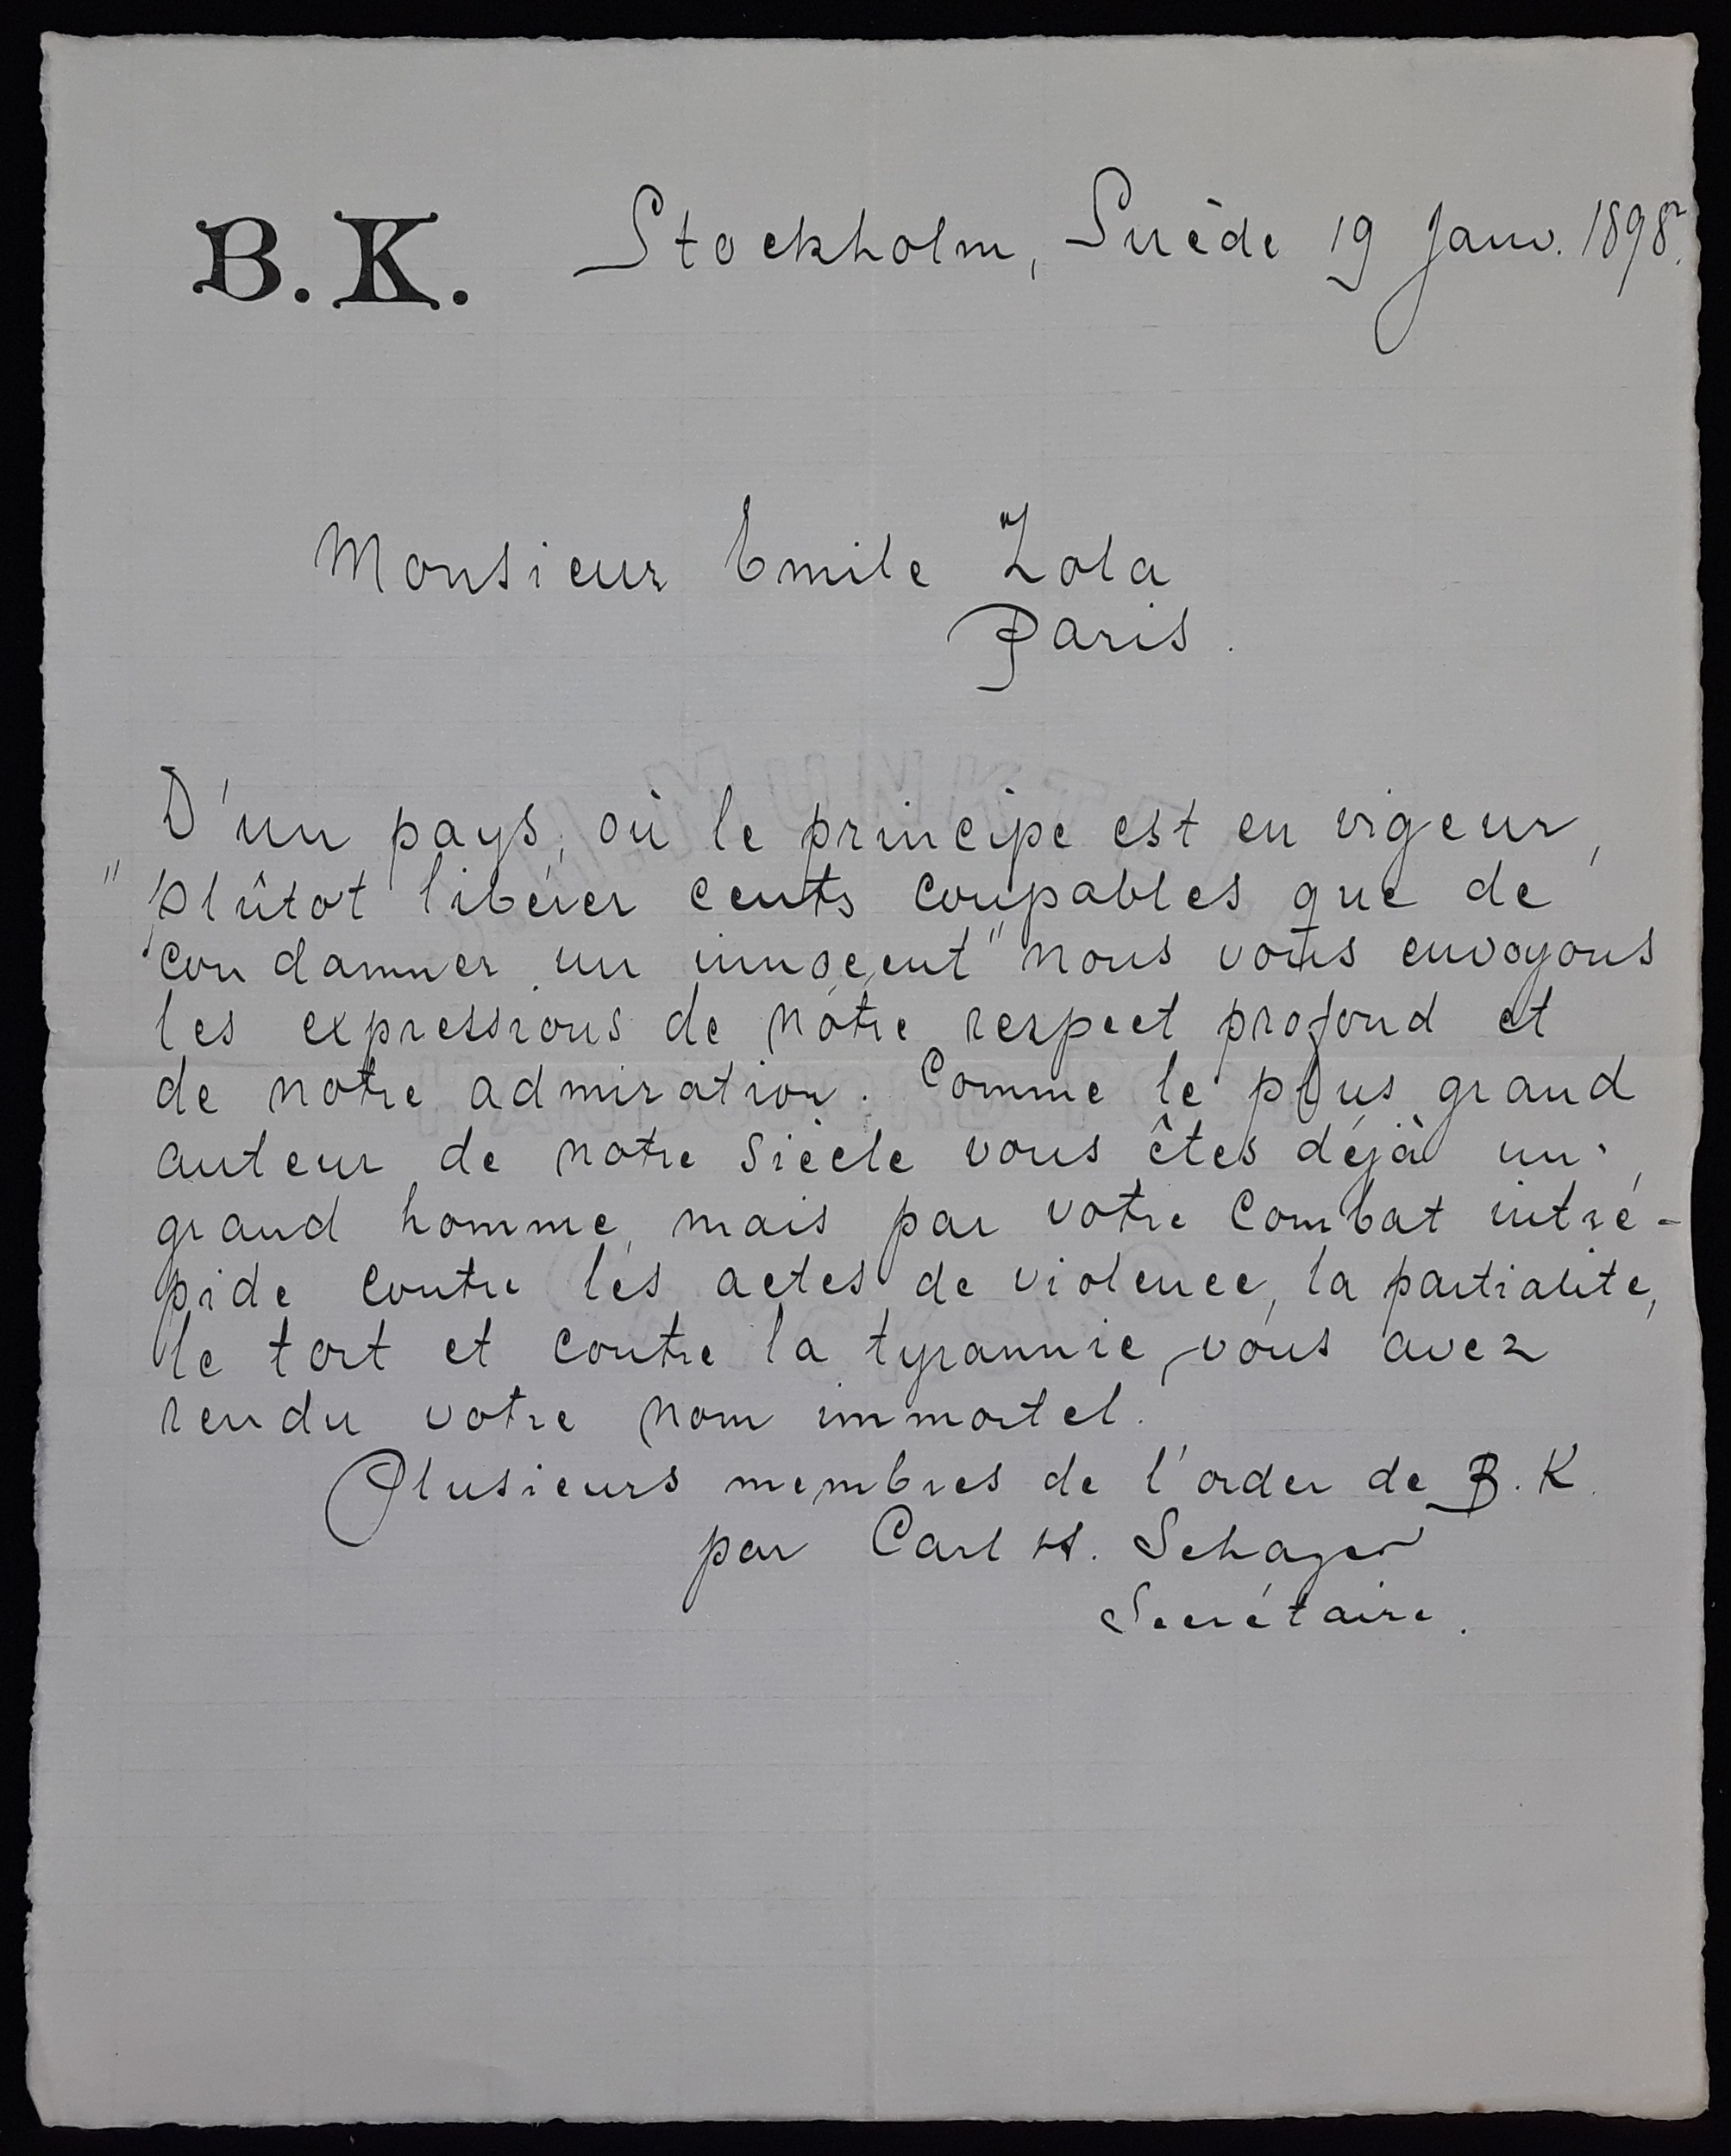 B. K. Stockholm, Suède 19 Janv. 1898.
Monsieur Emile Zola
Paris.
D'un pays, où le principe est en vigeur,
"plûtot libérer cents coupables que de
condamner un innocent" nous vous envoyons
les expressions de nôtre respect profond et
de notre admiration. Comme le plus grand
auteur de notre siècle vous êtes déjà un
grand homme, mais par votre combat intré-
pide contre les actes de violence, la partialité,
le tort et contre la tyrannie, vous avez
rendu votre nom immortel.
Plusieurs membres de l'order de B. K.
par Carl H. Schager
Secrétaire.